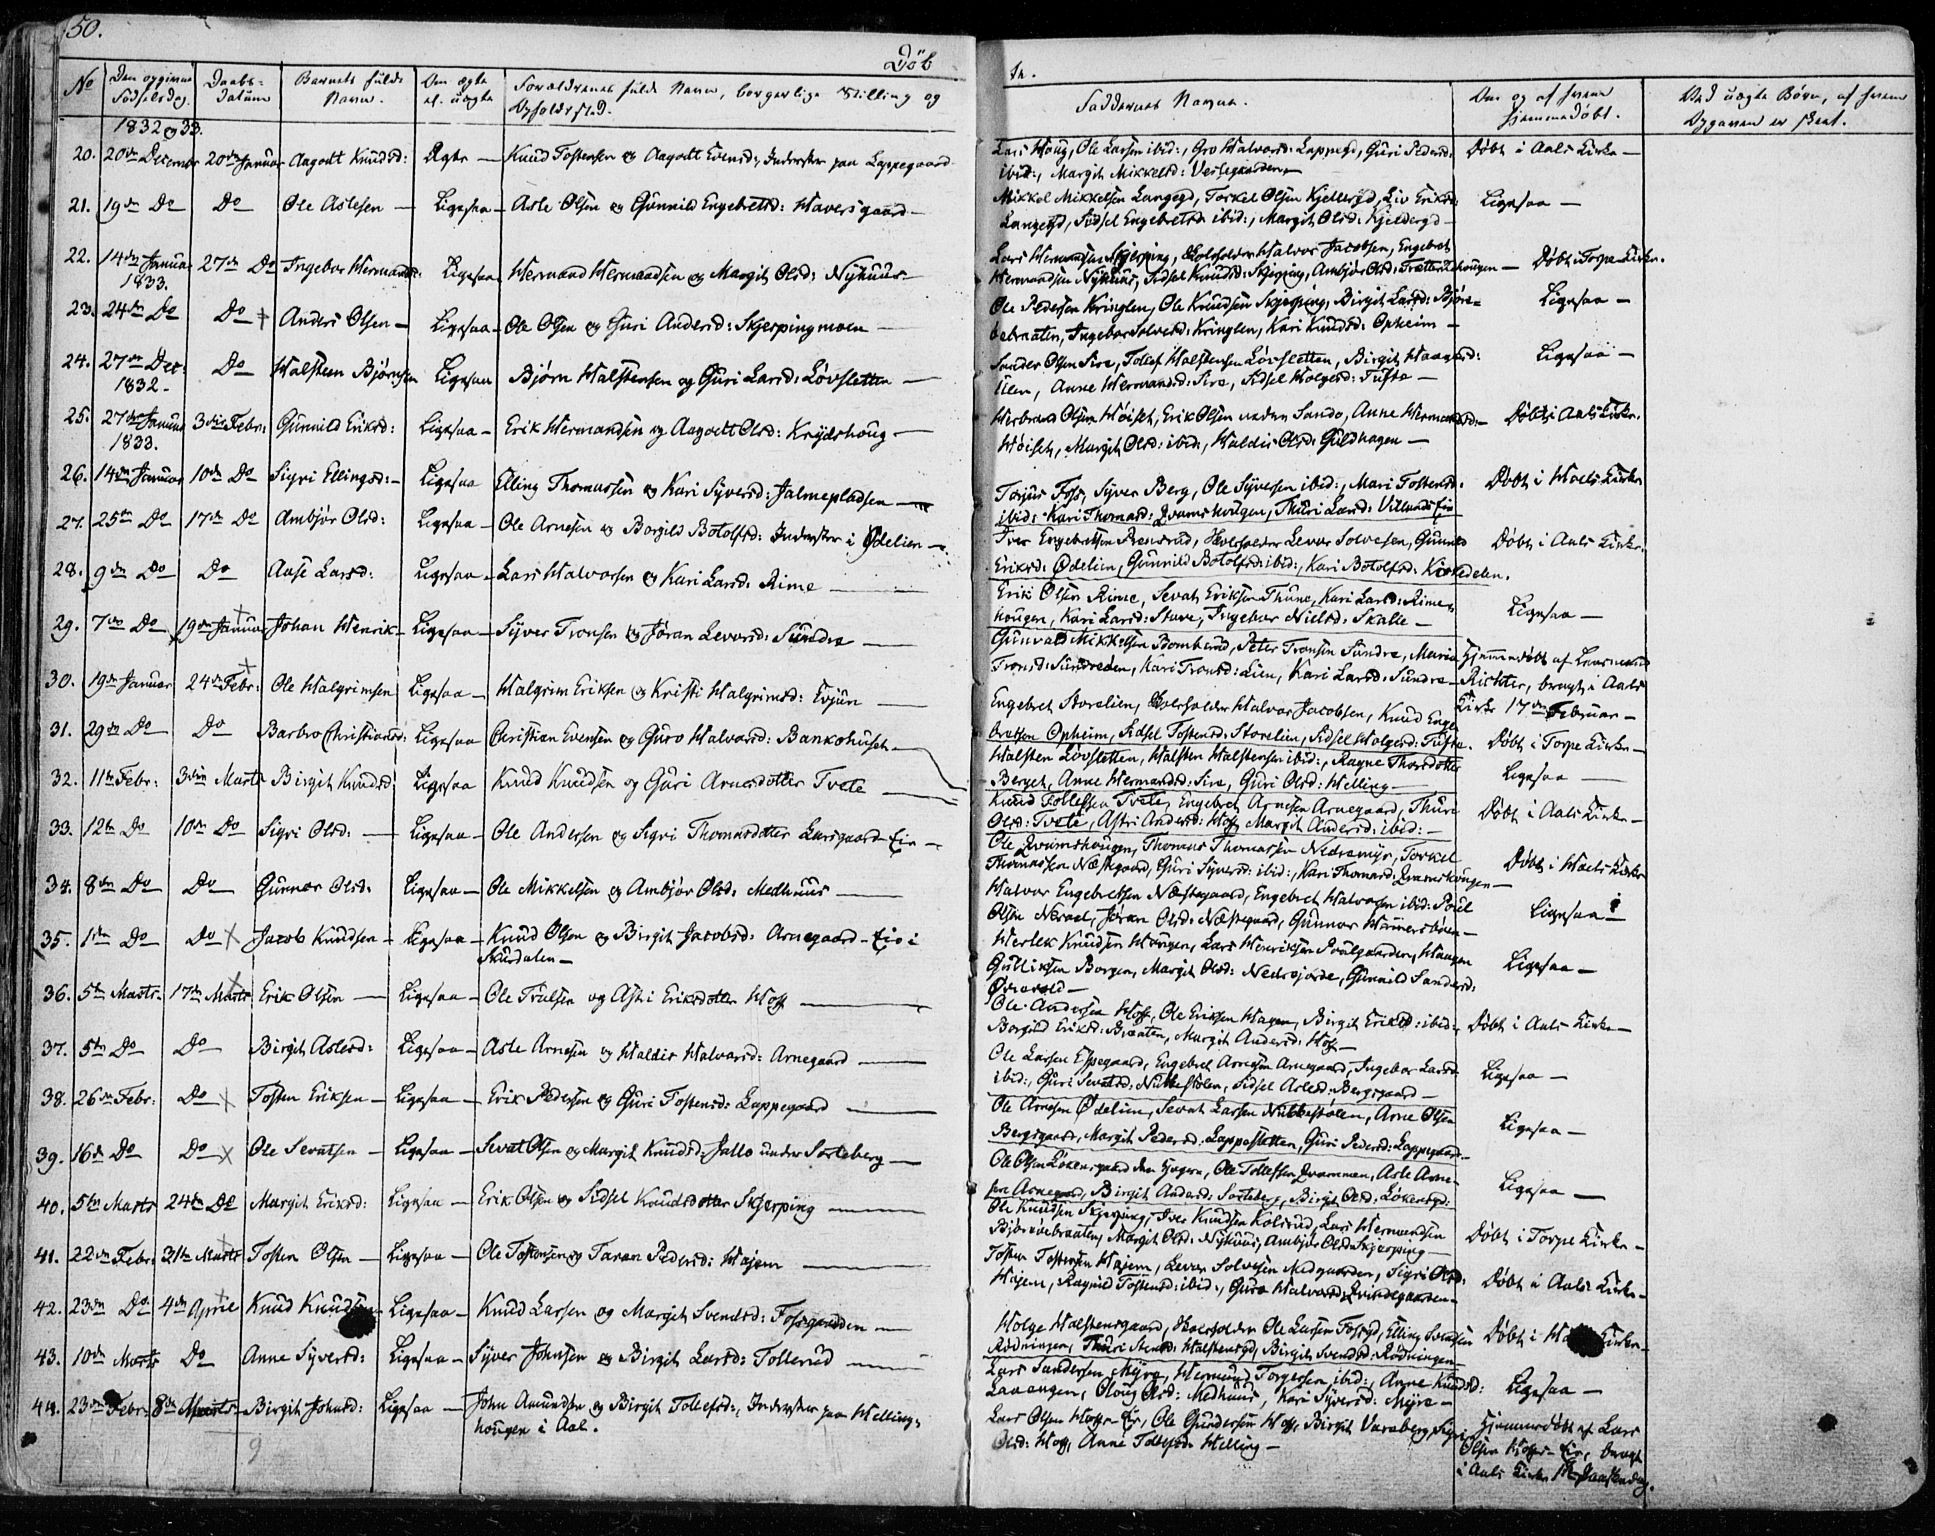 50.
Döb
te.
No
Den opgivne Födselsdag.
Daabs-Datum
Barnets fulde Navn.
Om ægte el. uægte
Forældrenes fulde Navn, borgerlige Stilling og Opholdssted.
Faddernes Navne.
Om og af hvem hjemmedöbt.
Ved uægte Börn, af hvem Opgaven er skeet.
1832 og 33.
20. 20de December 20de Januar Aagodt Knudsd: Ægte — Knud Tostensen og Aagodt Evensd:, Inderster paa Lappegaard
Lars Houg, Ole Larsen ibid:, Gro Halvorsd: Lappegd, Guri Pedersd:
ibid:, Margit Mikkelsd: Vestegaarden — Döbt i Aals Kirke —
21. 19de Do Do Ole Aslesen — Ligesaa — Asle Olsen og Gunnild Engebretsd: Haversgaard —
Mikkel Mikkelsen Langegd, Torkel Olsen Kjellergd, Liv Eriksd:
Langegd, Sidsel Engebretsd ibid:, Margit Olsd: Kjeldergd — Ligesaa —
22. 14de Januar 1833. 27de Do Ingebor Hermandsd: Ligesaa Hermand Hermandsen og Margit Olsd: Nyhuus
Lars Hermandsen Skjerping, Halvor Jacobsen, Engebret
Hermandsen Nyhuus, Sidsel Knudsd: Skjerping, Ambjör Olsd: — Döbt i Torpe Kirke.
23. 24de Do Do Anders Olsen — Ligesaa — Ole Olsen og Guri Andersd: Skjerpingmoen —
Ole Pedersen Kringlen, Ole Knudsen Skjerping, Birgit Larsd: Björne-
bebraaten, Ingebor Solvesd: Kringlen, Kari Knudsd: Opheim — Ligesaa —
24. 27de Dec: 1832. Do Halsteen Björnsen Ligesaa Björn Halstensen og Guri Larsd: Lövsletten —
Sander Olsen Sire, Tollef Halstensen Lövsletten, Birgit
Anne Hermandsd: Sire, Sidsel Holgersd: Tufte — Ligesaa —
25. 27de Januar 1833. 3die Febr: Gunnild Eriksd: Ligesaa — Erik Hermandsen og Aagodt Olsd: Krydshoug —
Herbrand Olsen Höiset, Erik Olsen neden Sando, Anne Hermandsd: —
Höiset, Margit Olsd: ibid:, Haldis Olsd: Guldhagen — Döbt i Aals Kirke.
26. 14de Januar 10de Do Sigri Ellingsd: — Ligesaa Elling Thomassen og Kari Syversd: Jalmepladsen —
Torjus Foss, Syver Berg, Ole Syversen ibid:, Mari Tostensd:
ibid: Kari Thomasd: Qvamshougen, Thuri Larsd: Villands Eie Döbt i Hols Kirke
27. 25de Do 17de Do Ambjör Olsd: Ligesaa — Ole Arnesen og Borgild Botolfsd: Inderster i Ödelien —
Iver Engebretsen Levor Solvesen, Gunnild
Eriksd: Ödelien, Gunnild Botolfsd: ibid:, Kari Botolfsd: Kirkedelen. Döbt i Aals Kirke.
28. 9de Do Do Aase Larsd: Ligesaa — Lars Halvorsen og Kari Larsd: Rime —
Erik Olsen Rime, Sevat Eriksen Thune, Kari Larsd: Rime-
hougen, Kari Larsd: Stave, Ingebor Nielsd: Skalle — Ligesaa —
29. 7de Do 19de Januar Johan Henrik — Ligesaa — Syver Tronsen og Jöran Levorsd: Sundre —
Gunvald Mikkelsen Bomberud, Peter Tronsen Sundre, Maria
Tronsd: Sundreden, Kari Tronsd: Lien, Kari Larsd: Sundre — Hjemmedöbt af
Richter, bragt i Aals Kirke 17de Februar —
30. 19de Januar 24de Febr: Ole Halgrimsen Ligesaa — Halgrim Eriksen og Kristi Halgrimsd: Evjun —
Engebret Storelien, Halvor Jacobsen, Knud Enge-
bretsen Opheim, Sidsel Tostensd: Storelien, Sidsel Holgersd: Tufte. Döbt i Torpe Kirke —
31. 29de Do Do Barbro Christiansd: Ligesaa Christian Evensen og Guro Halvorsd: Bankehuset —
Halsten Lövsletten, Halsten Halstensen ibid:, Ragne Thorsdotter
Berget, Anne Hermandsd: Sire, Guri Olsd: Helling — Ligesaa —
32. 11te Febr: 3die Marts Birgit Knudsd: Ligesaa Knud Knudsen og Guri Arnesdotter Tvete —
Knud Tollefsen Tvete, Engebret Arnesen Arnegaard, Thuri
Olsd: Tvete, Astri Andersd: Hoff, Margit Andersd: ibid: — Döbt i Aals Kirke —
33. 12te Do 10de Do Sigri Olsd: — Ligesaa — Ole Andersen og Sigri Thomasdotter Larsgaard Eie —
Ole Qvamshougen, Thomas Thomassen Nedremyr, Torkel
Thomassen Næstegaard, Guri Syversd: ibid:, Kari Thomasd: Qvamshougen — Döbt i Hols Kirke
34. 8de Do Do Gunnor Olsd: Ligesaa — Ole Mikkelsen og Ambjör Olsd: Medhuus —
Halvor Engebretsen Næstegaard, Engebret Halvorsen ibid: Poul
Olsen Jöran Olsd: Næstegaard, Gunnor Hammersböen — Ligesaa —
35. 1ste Do Do Jacob Knudsen — Ligesaa — Knud Olsen og Birgit Jacobsd: Arnegaard — Eie i
Skurdalen —
Herlek Knudsen Hougen, Lars Henriksen Haagen
Gulliksen Borgen, Margit Olsd: Nedrejorde, Gunnild Sandersd:
Ligesaa —
36. 5te Marts 17de Marts Erik Olsen — Ligesaa — Ole Trulsen og Astri Eriksdotter Hoff —
Ole Andersen Hoff, Ole Eriksen Hagen, Birgit Eriksd: ibid:
Borgild Eriksd: Braaten, Margit Andersd: Hoff — Döbt i Aals Kirke —
37. 5te Do Do Birgit Aslesd: Ligesaa — Asle Arnesen og Haldis Halvorsd: Arnegaard —
Ole Larsen Espegaard, Engebret Arnesen Arnegaard, Ingebor Larsd
ibid:, Guri Sevatsd: Nubbestölen, Sidsel Aslesd: Bergsgaard — Ligesaa —
38. 26de Febr: Do Tosten Eriksen — Ligesaa — Erik Pedersen og Guri Tostensd: Lappegaard —
Ole Arnesen Ödelien, Sevat Larsen Nubbestölen, Arne Olsen
Bergsgaard, Margit Pedersd: Lappesletten, Guri Pedersd: Lappegaard — Ligesaa —
39. 16de Do Do Ole Sevatsen — Ligesaa — Sevat Olsen og Margit Knudsd: Jallo under Sorteberg —
Ole Olsen Lökensgaard den Yngre, Ole Tollefsen Qvammen, Asle Arne-
sen Arnegaard, Birgit Andersd: Sorteberg, Birgit Olsd: Lökensgd: Ligesaa —
40. 5te Marts 24de Do Margit Eriksd: Ligesaa — Erik Olsen og Sidsel Knudsdotter Skjerping —
Ole Knudsen Skjerping, Iver Knudsen Kolsrud, Lars Hermandsen
Björnebebraaten, Margit Olsd: Nyhuus, Ambjör Olsd: Skjerping — Döbt i Torpe Kirke —
41. 22de Febr: 31te Marts Tosten Olsen — Ligesaa — Ole Tostensen og Taran Pedersd: Hajem —
Tosten Tostensen Hajem, Levor Solvesen Nedgaarden, Sigri Olsd:
Hajem, Ragnild Tostensd: ibid:, Guro Halvorsd: — Döbt i Aals Kirke —
42. 23de Do 4de April Knud Knudsen Ligesaa — Knud Larsen og Margit Svendsd: Fossgarden —
Holge Halstensgaard, Ole Larsen Fossgd, Elling Svendsen
Rödningen, Thuri Stensd: Halstensgd, Birgit Svendsd: Rödningen — Döbt i Kirke —
43. 10de Marts Do Anne Syversd: Ligesaa — Syver Johnsen og Birgit Larsd: Tollerud —
Lars Sandersen Myre, Hermund Torgersen ibid:, Anne Knudsd:
Lavangen, Oloug Olsd: Medhuus, Kari Syversd: Myre — Ligesaa —
44. 23de Febr: 8de Birgit Johnsd: Ligesaa — John Amundsen og Birgit Tollefsd:, Inderster paa Helling-
hougen i Aal.
Lars Olsen Hoffs-Eie, Ole Gundersen Hoff, Birgit Vareberg, Sigri
Olsd: Hoff, Anne Tollefsd: Helling — Hjemmedöbt af Lars
Olsen Hoffs-Eie, bragt
i Aals Kirke Paaskedag.
9